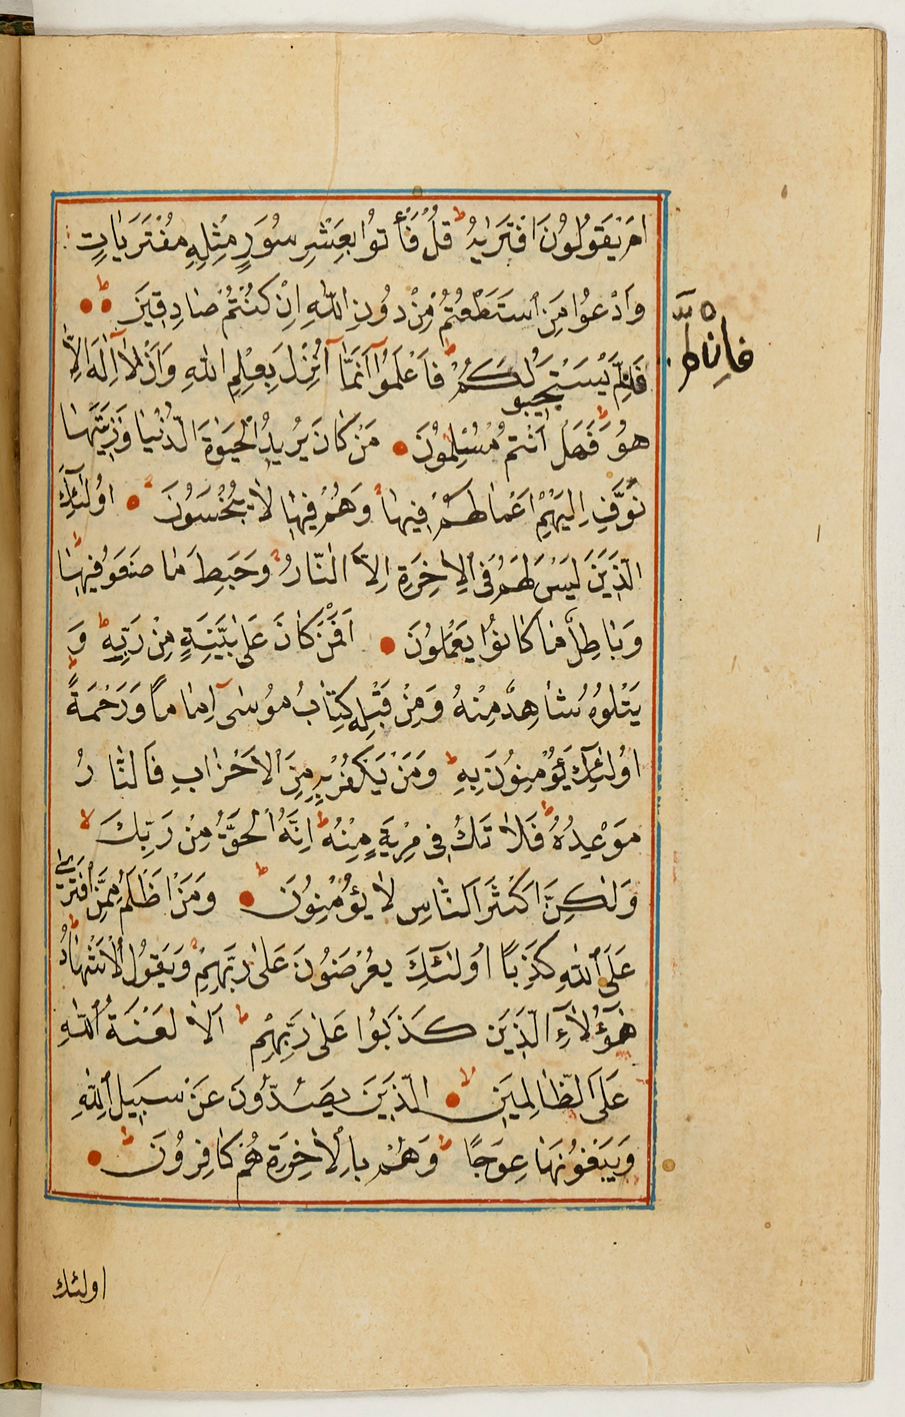 اَمْ يَقُولُونَ افْتَرٰيهُ ط قُلْ فَأْتُوا بِعَشْرِ سُوَرٍ مِثْلِهِ مُفْتَرَيَاتٍ
وَادْعُوا مَنِ اسْتَطَعْتُمْ مِنْ دُونِ اللّٰهِ اِنْ كُنْتُمْ صَادِقِينَ ط
فَاِلَّمْ يَسْتَجِيبُوا لَكُمْ ط فَاعْلَمُوا اَنَّمَا اُنْزِلَ بِعِلْمِ اللّٰهِ وَاَنْ لَا اِلٰهَ اِلَّا
هُوَ ط فَهَلْ اَنْتُمْ مُسْلِمُونَ مَنْ كَانَ يُرِيدُ الْحَيٰوةَ الدُّنْيَا وَزِينَتَهَا
نُوَفِّ اِلَيْهِمْ اَعْمَالَهُمْ فِيهَا وَهُمْ فِيهَا لَا يُبْخَسُونَ اُولٰئِكَ
الَّذِينَ لَيْسَ لَهُمْ فِي الْاٰخِرَةِ اِلَّا النَّارُ وَحَبِطَ مَا صَنَعُوا فِيهَا
وَبَاطِلٌ مَا كَانُوا يَعْمَلُونَ اَفَمَنْ كَانَ عَلٰى بَيِّنَةٍ مِنْ رَبِّهِ ط وَ
يَتْلُوهُ شَاهِدٌ مِنْهُ وَمِنْ قَبْلِهِ كِتَابُ مُوسٰى اِمَامًا وَرَحْمَةً ط
اُولٰئِكَ يُؤْمِنُونَ بِهِ ط وَمَنْ يَكْفُرْ بِهِ مِنَ الْاَحْزَابِ فَالنَّارُ
مَوْعِدُهُ ط فَلَا تَكُ فِي مِرْيَةٍ مِنْهُ ط اِنَّهُ الْحَقُّ مِنْ رَبِّكَ لا
وَلٰكِنَّ اَكْثَرَ النَّاسِ لَا يُؤْمِنُونَ ط وَمَنْ اَظْلَمُ مِمَّنِ افْتَرٰى
عَلَى اللّٰهِ كَذِبًا اُولٰئِكَ يُعْرَضُونَ عَلٰى رَبِّهِمْ وَيَقُولُ الْاَشْهَادُ
هٰؤُلَاءِ الَّذِينَ كَذَبُوا عَلٰى رَبِّهِمْ ط اَلَا لَعْنَةُ اللّٰهِ
عَلَى الظَّالِمِينَ لا الَّذِينَ يَصُدُّونَ عَنْ سَبِيلِ اللّٰهِ
وَيَبْغُونَهَا عِوَجًا ط وَهُمْ بِالْاٰخِرَةِ هُمْ كَافِرُونَ ط
اولئك